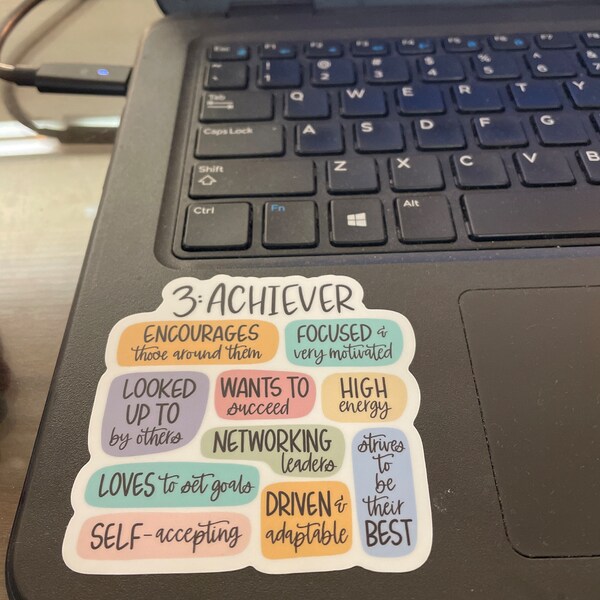 Esc F1 F2 F3 F4 F5 F6 F7
! @ # $ % ^ &
1 2 3 4 5 6 7
Tab Q W E R T Y
Caps Lock A S D F G
Shift Z X C V B
Ctrl Fn Alt
3: ACHIEVER
ENCOURAGES
those around them
FOCUSED &
very motivated
LOOKED
UP TO
by others
WANTS TO
succeed
HIGH
energy
NETWORKING
leaders
strives
to
be
their
BEST
LOVES to set goals
DRIVEN &
adaptable
SELF-accepting